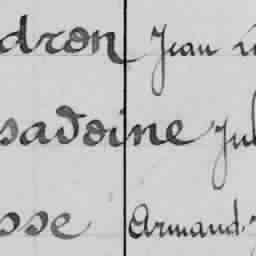 dron Jean
sadoine Jul
sse Armand